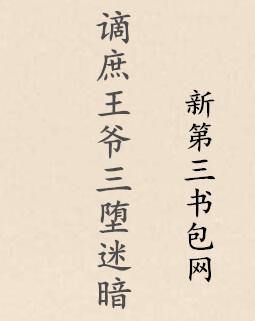 谪庶王爷三堕迷暗
新第三书包网